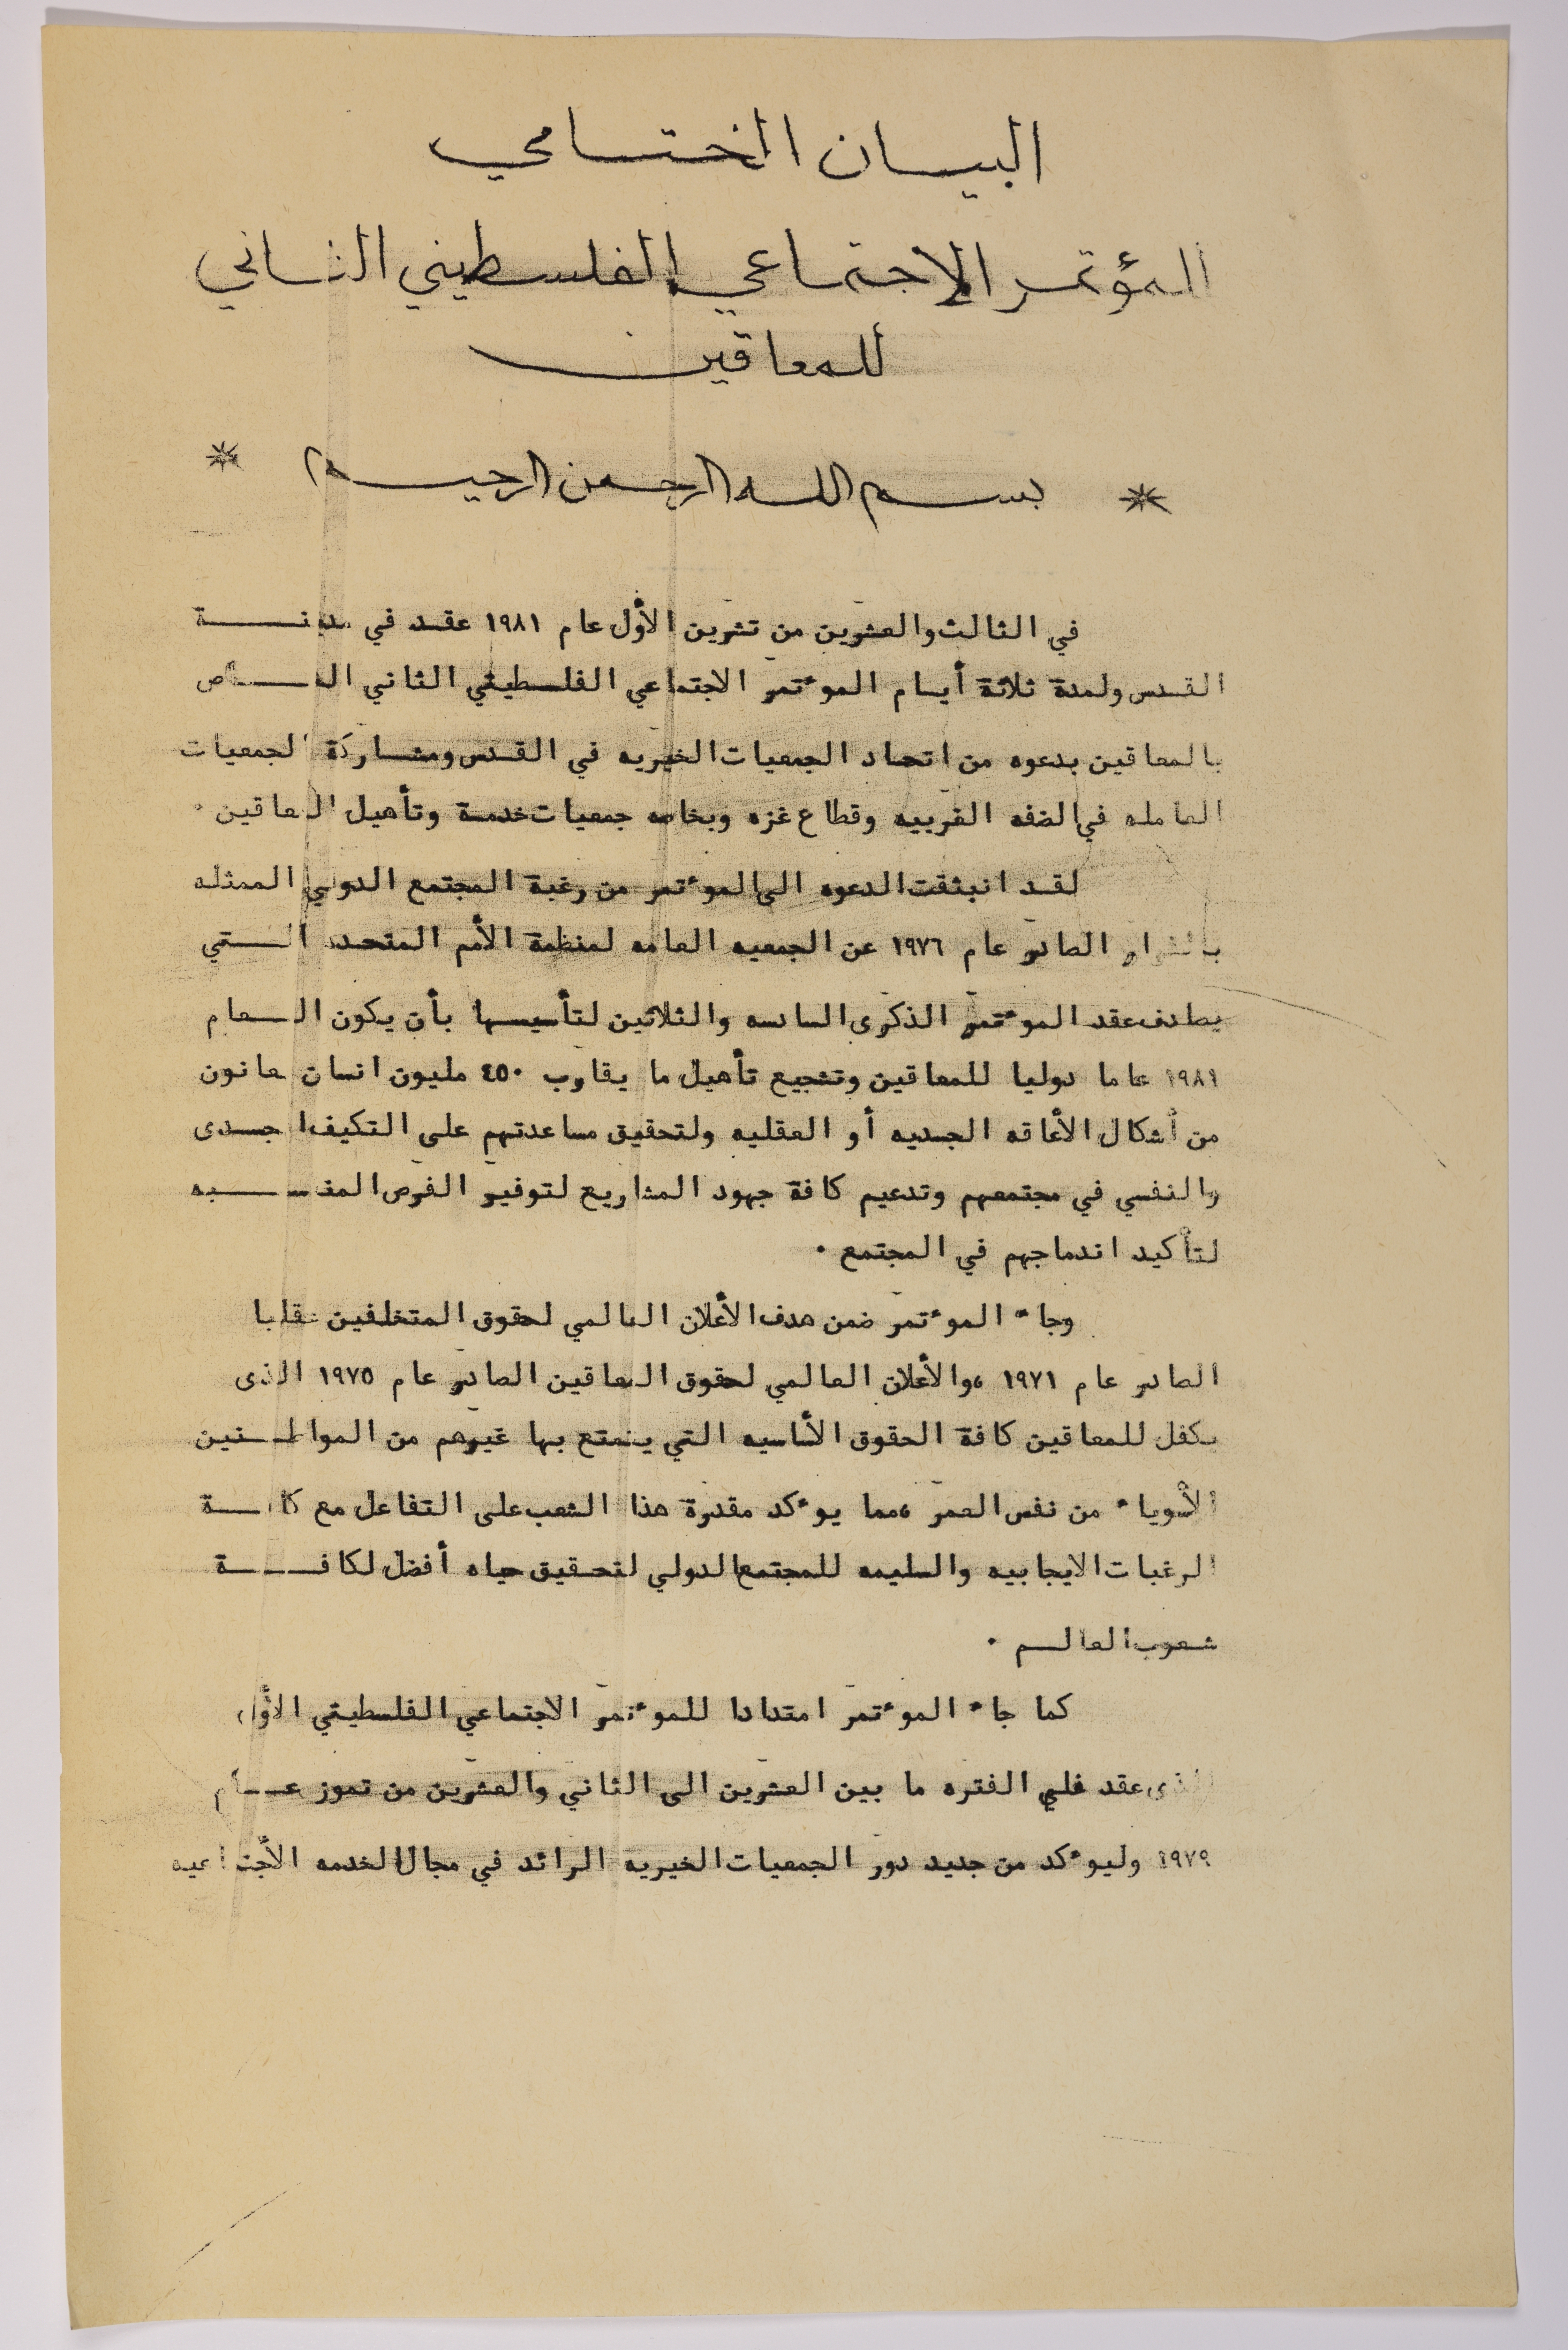 البيان الختامي
المؤتمر الاجتماعي الفلسطيني الثاني
للمعاقين
* بسم الله الرحمن الرحيم *
في الثالث والعشرين من تشرين الأول عام ١٩٨١ عقد في مدينة
القدس ولمدة ثلاثة أيام الموءتمر الاجتماعي الفلسطيني الثاني الخاص
بالمعاقين بدعوه من اتحاد الجمعيات الخيريه في القدس ومشاركة الجمعيات
العامله في الضفه الغربيه وقطاع غزه وبخاصه جمعيات خدمة وتأهيل المعاقين ٠
لقد انبثقت الدعوه الى الموءتمر من رغبة المجتمع الدولي الممثله
بالقرار الصادر عام ١٩٧٦ عن الجمعيه العامه لمنظمة الأمم المتحده التي
يصادف عقد الموءتمر الذكرى السادسه والثلاثين لتأسيسها بأن يكون العام
١٩٨١ عاما دوليا للمعاقين وتشجيع تأهيل ما يقارب ٤٥٠ مليون انسان يعانون
من أشكال الأعاقه الجسديه أو العقليه ولتحقيق مساعدتهم على التكيف الجسدى
والنفسي في مجتمعهم وتدعيم كافة جهود المشاريع لتوفير الفرص المناسبه
لتأكيد اندماجهم في المجتمع ٠
وجاء الموءتمر ضمن هدف الأعلان العالمي لحقوق المتخلفين عقليا
الصادر عام ١٩٧١ ،والأعلان العالمي لحقوق المعاقين الصادر عام ١٩٧٥ الذى
يكفل للمعاقين كافة الحقوق الأساسيه التي يتمتع بها غيرهم من المواطنين
الأسوياء من نفس العمر ،مما يوءكد مقدرة هذا الشعب على التفاعل مع كافة
الرغبات الايجابيه والسليمه للمجتمع الدولي لتحقيق حياه أفضل لكافة
شعوب العالم ٠
كما جاء الموءتمر امتدادا للموءتمر الاجتماعي الفلسطيني الأول
الذى عقد في الفتره ما بين العشرين الى الثاني والعشرين من تموز عام
١٩٧٩ وليوءكد من جديد دور الجمعيات الخيريه الرائد في مجال الخدمه الأجتماعيه